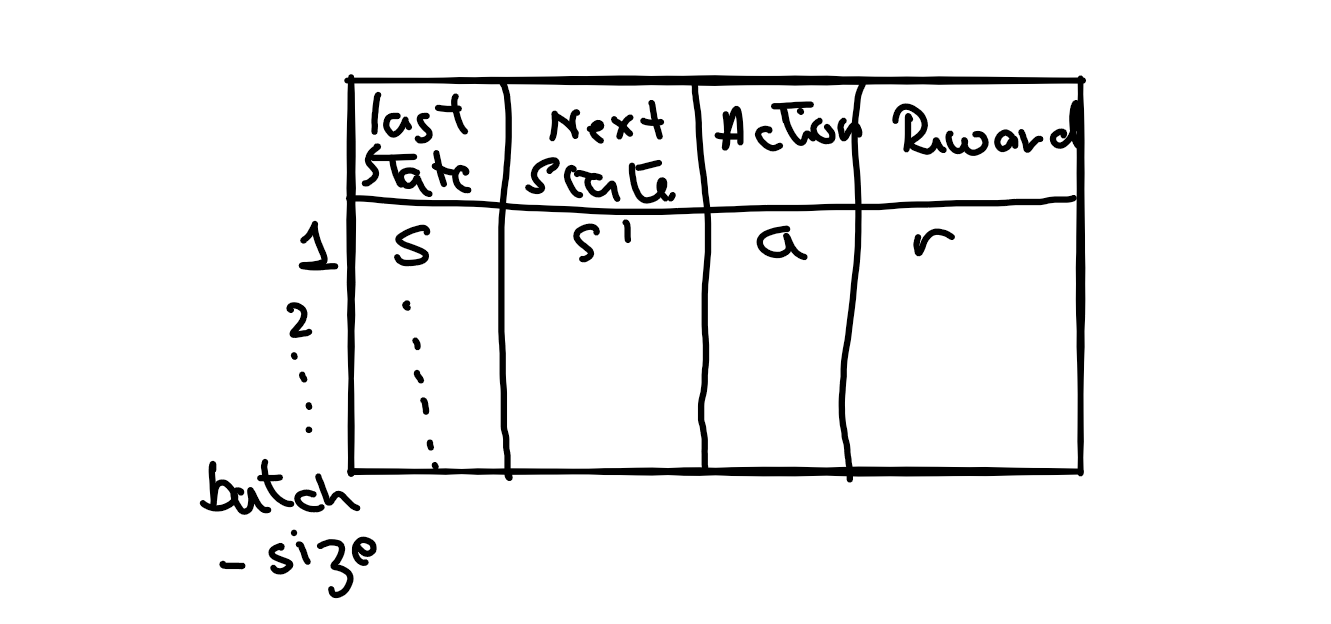 last state
Next state
Action
Reward
1 s s' a r
2
batch
- size